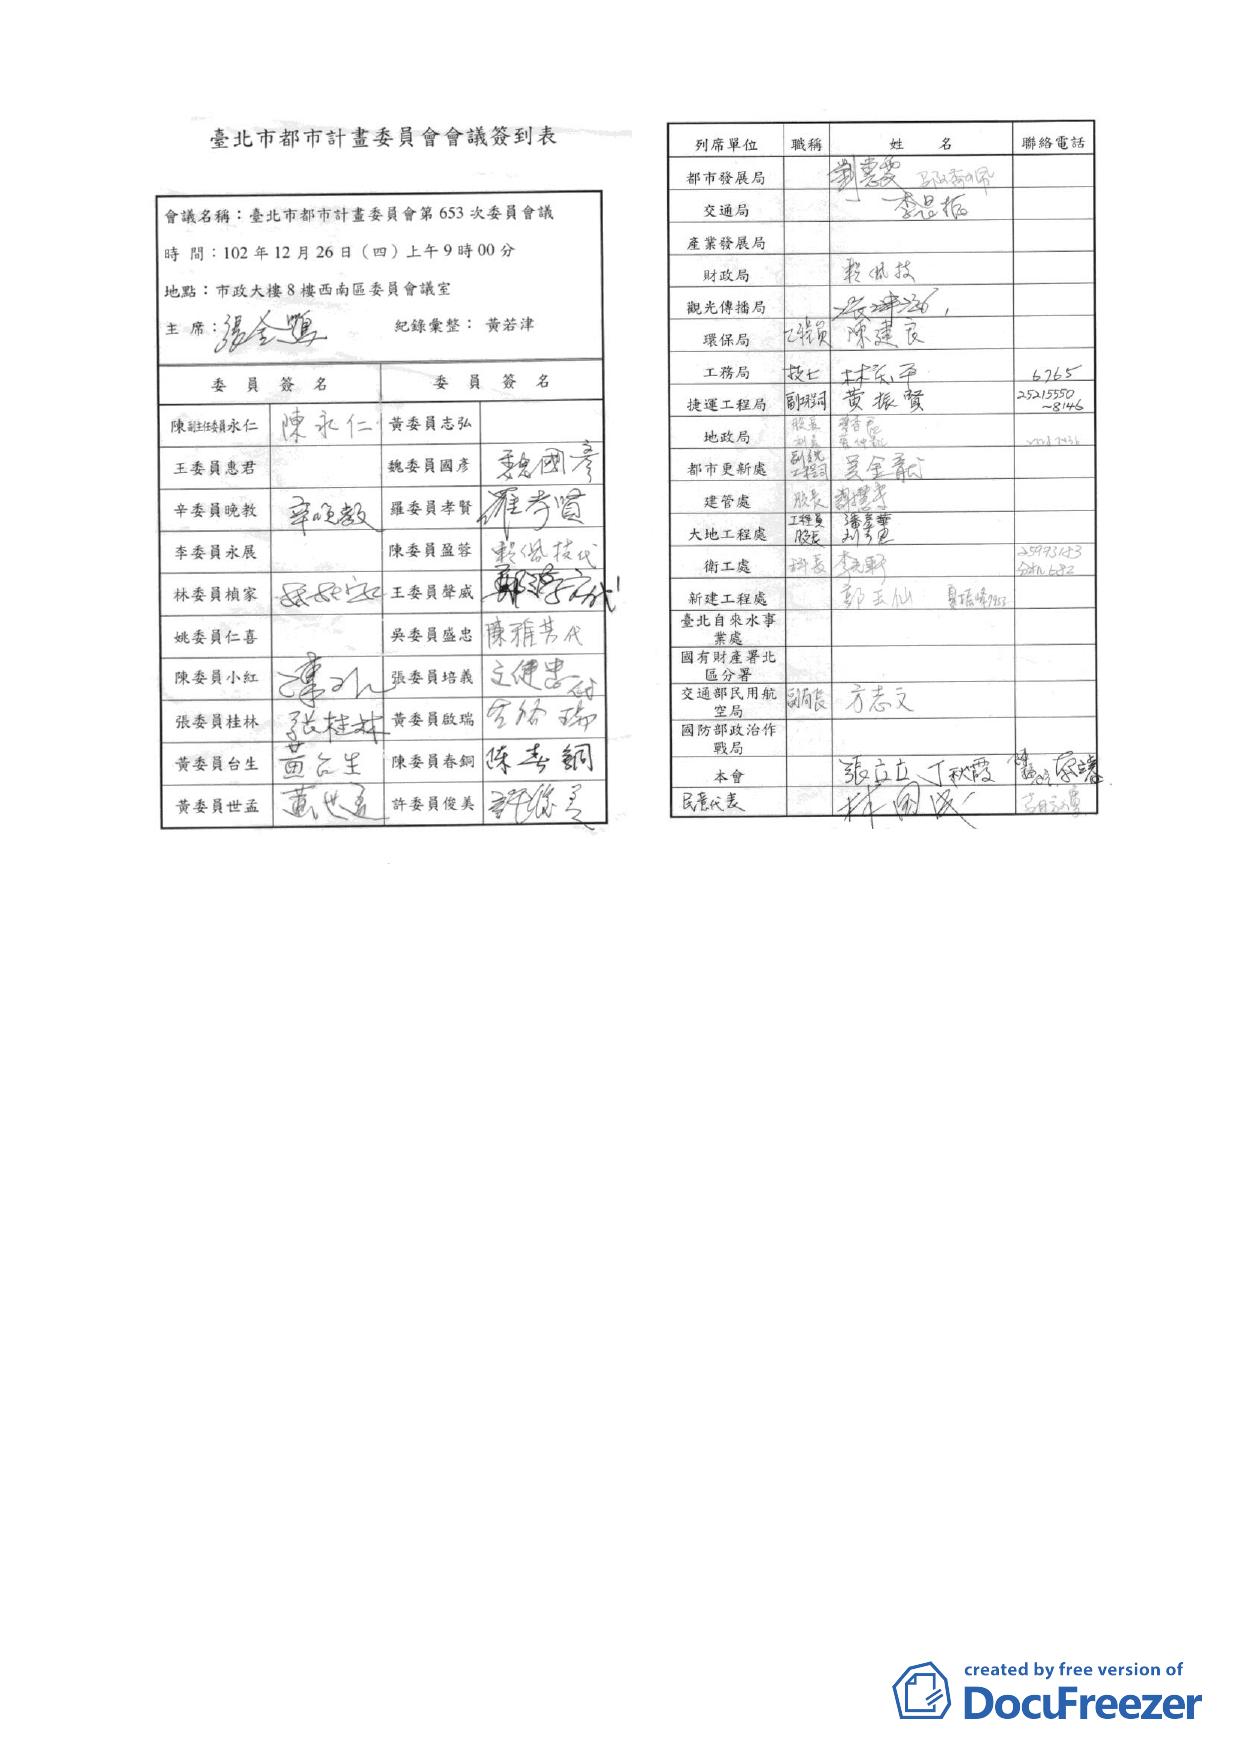 臺北市都市計畫委員會會議簽到表
會議名稱：臺北市都市計畫委員會第 653 次委員會議
時 間：102 年 12 月 26 日（四）上午 9 時 00 分
地點：市政大樓 8 樓西南區委員會議室
主 席： 紀錄彙整： 黃若津
委 員 簽 名 委 員 簽 名
陳副主任委員永仁 陳永仁 黃委員志弘
王委員惠君 魏委員國彥 魏國彥
辛委員晚教 辛晚教 羅委員孝賢 羅孝賢
李委員永展 陳委員盈蓉 賴佩技代
林委員楨家 王委員聲威
姚委員仁喜 吳委員盛忠 陳雅芳代
陳委員小紅 張委員培義
張委員桂林 張桂林 黃委員啟瑞
黃委員台生 黃台生 陳委員春銅 陳春銅
黃委員世孟 黃世孟 許委員俊美 許俊美
列席單位 職稱 姓 名 聯絡電話
都市發展局
交通局
產業發展局
財政局 賴佩技
觀光傳播局
環保局 工程員 陳建良
工務局 技士 6765
捷運工程局 黃振賢 25215550
~8146
地政局 股長
都市更新處 副總工程司 吳金龍
建管處 股長
大地工程處 工程員
股長
衛工處 科長 25973183
分機 682
新建工程處
臺北自來水事業處
國有財產署北區分署
交通部民用航空局 副局長 方志文
國防部政治作戰局
本會 張立立 丁秋霞
民意代表 林國成
created by free version of
DocuFreezer